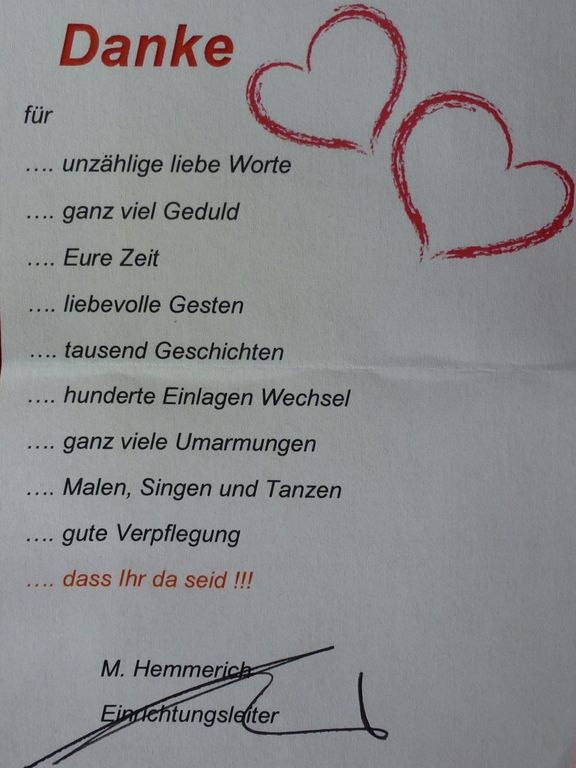 Danke
für
.... unzählige liebe Worte
.... ganz viel Geduld
.... Eure Zeit
.... liebevolle Gesten
.... tausend Geschichten
.... hunderte Einlagen Wechsel
.... ganz viele Umarmungen
.... Malen, Singen und Tanzen
.... gute Verpflegung
.... dass Ihr da seid !!!
M. Hemmerich
Einrichtungsleiter